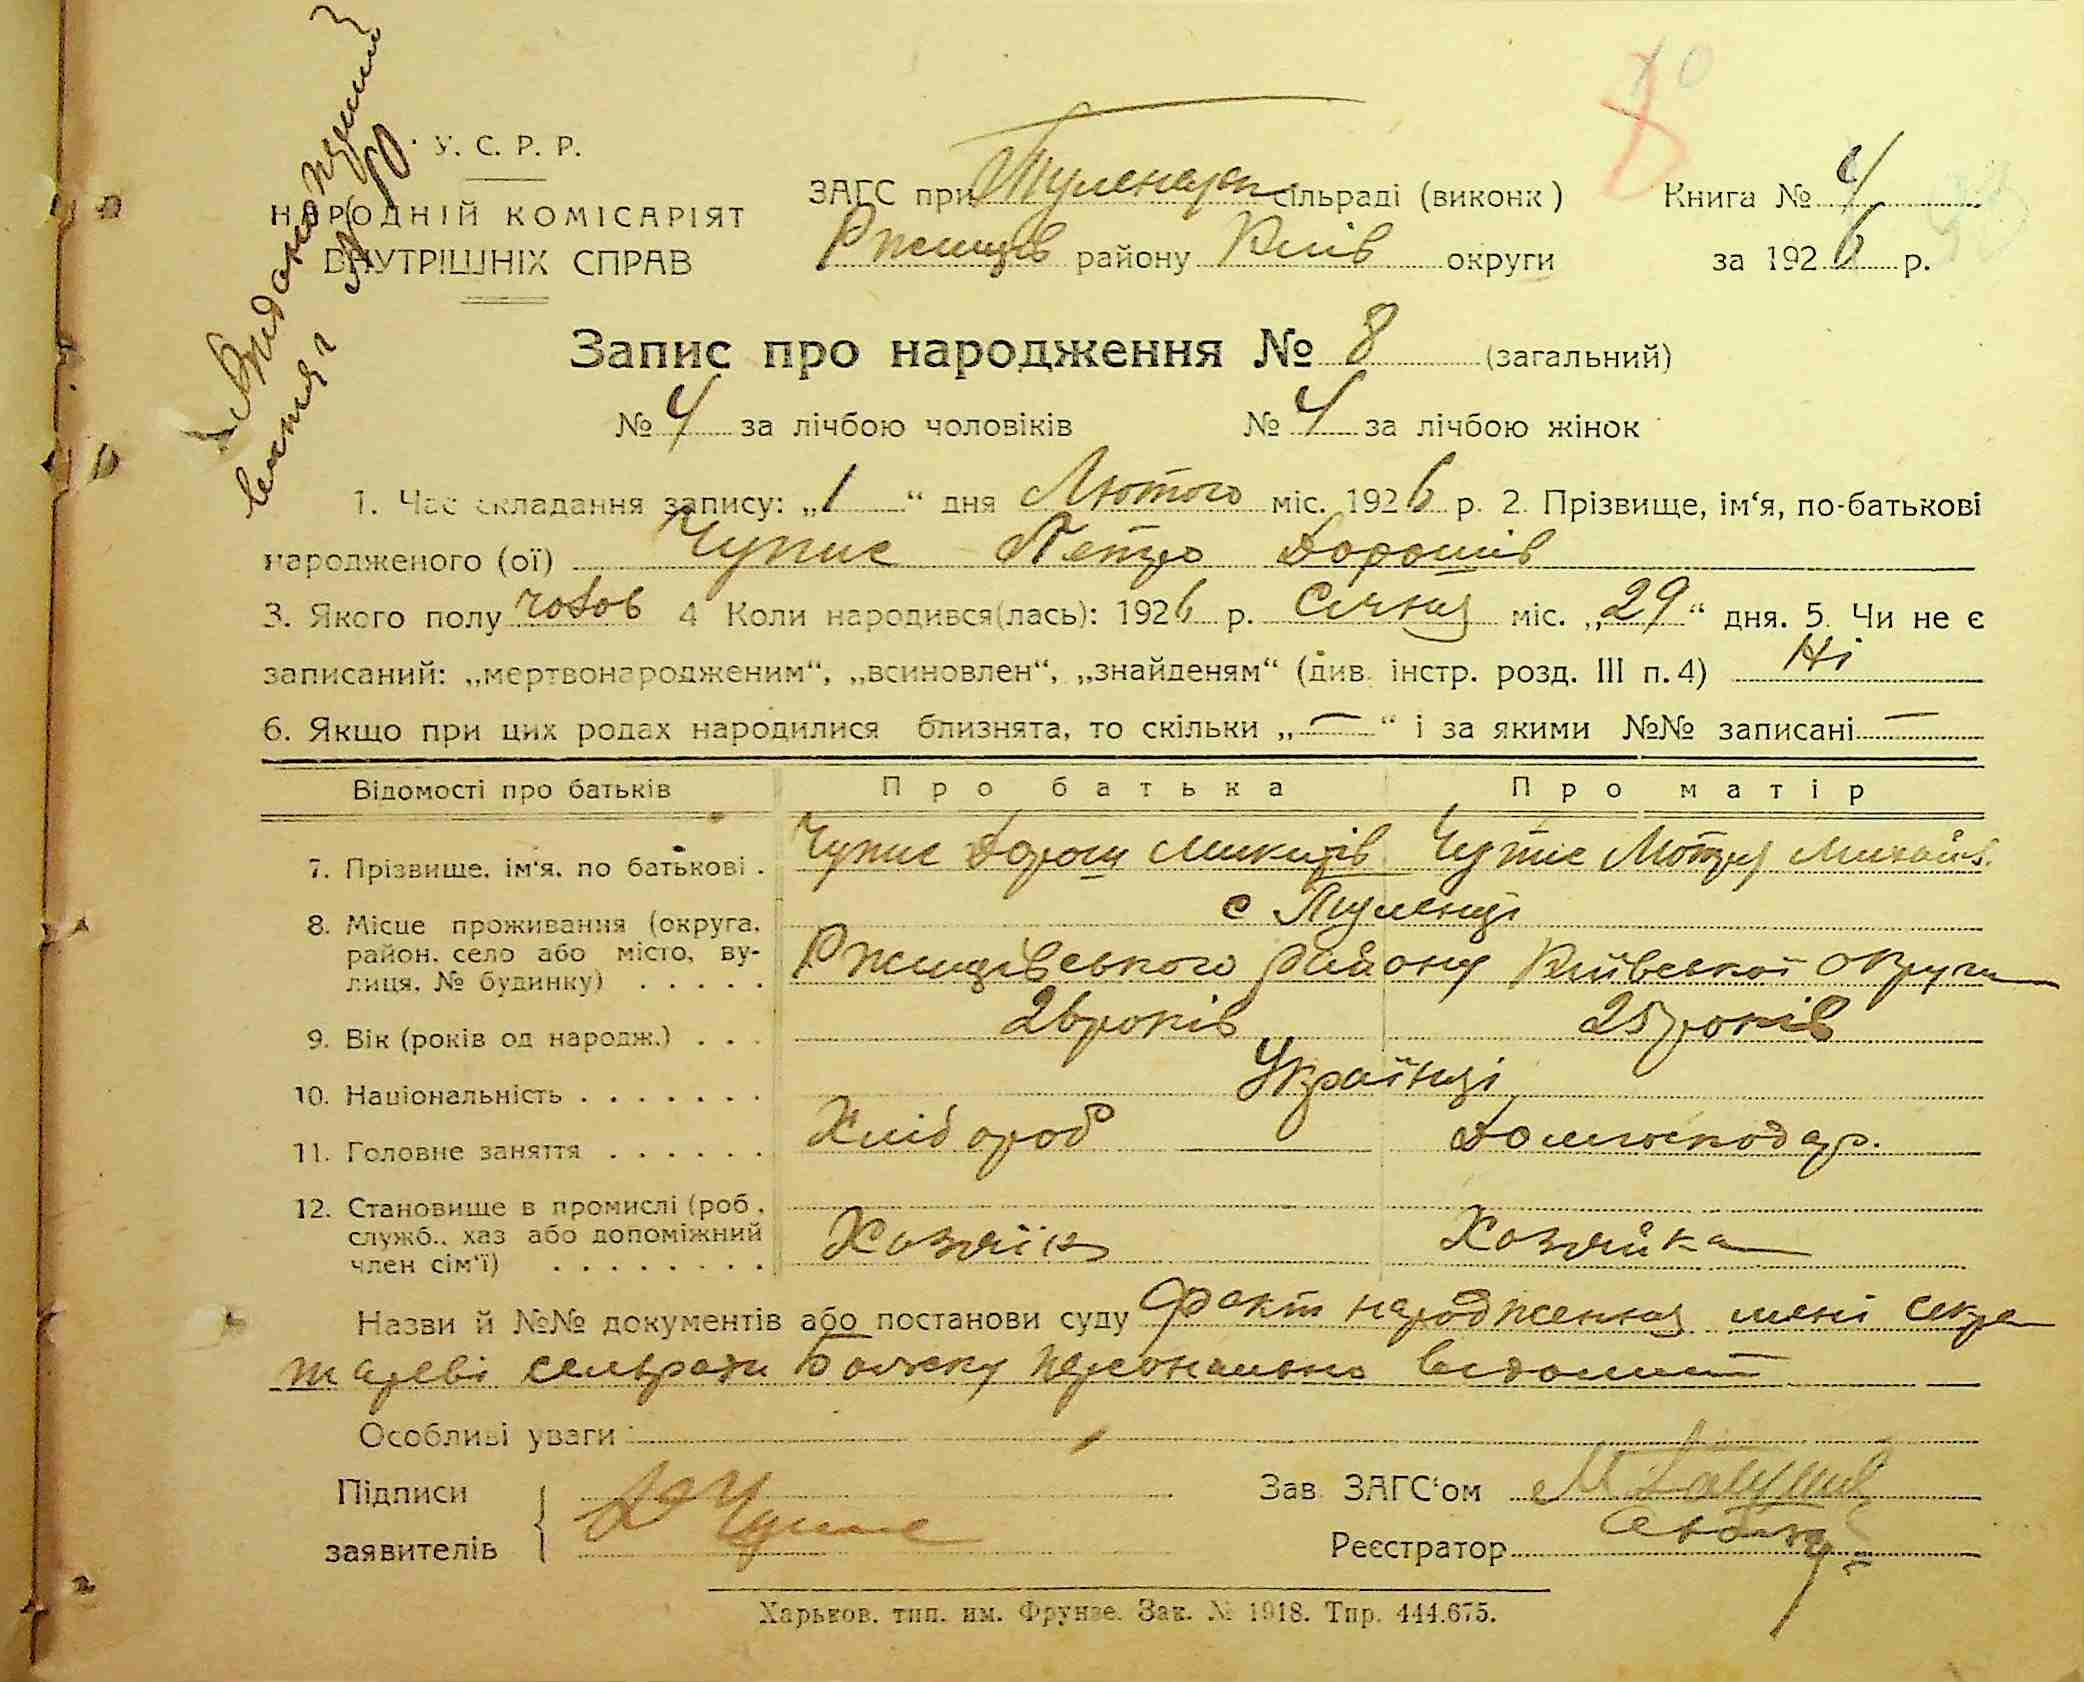 У. С. Р. Р.
НАРОДНІЙ КОМІСАРІЯТ
ВНУТРІШНІХ СПРАВ
ЗАГС при Туленськ сільраді (виконк)
Ржищів району Київ округи
Книга № 4
за 1926 р.
8
Запис про народження № 8 (загальний)
№ 4 за лічбою чоловіків № 4 за лічбою жінок
1. Час складання запису: „1“ дня Лютого міс. 1926 р. 2. Прізвище, ім‘я, по-батькові
народженого (ої) Чупис Петро Дорошів
3. Якого полу чолов 4 Коли народився(лась): 1926 р. Січня міс. „29“ дня. 5. Чи не є
записаний: „мертвонародженим“, „всиновлен“, „знайденям“ (див. інстр. розд. III п. 4) Ні
6. Якщо при цих родах народилися близнята, то скільки „—“ і за якими №№ записані —
Відомості про батьків Про батька Про матір
7. Прізвище, ім‘я, по батькові . Чупис Дорош Микитів Чупис Мотря Михайл.
8. Місце проживання (округа, район, село або місто, вулиця, № будинку) . . . . . с Тулинці
Ржищівського району Київської округи
9. Вік (років од народж.) . . . 26 років 25 років
10. Національність . . . . . . . Українці
11. Головне заняття . . . . . . Хлібороб Домгосподар.
12. Становище в промислі (роб., служб., хаз або допоміжний член сім‘ї) . . . . . . . . Хозяїн Хозяйка
Назви й №№ документів або постанови суду Факт народження мені секре
тареві сельради персонально відомий
Особливі уваги
Підписи
заявителів
Д Чупис
Зав. ЗАГС‘ом
Реєстратор
Харьков. тип. им. Фрунзе. Зак. № 1918. Тир. 444.675.